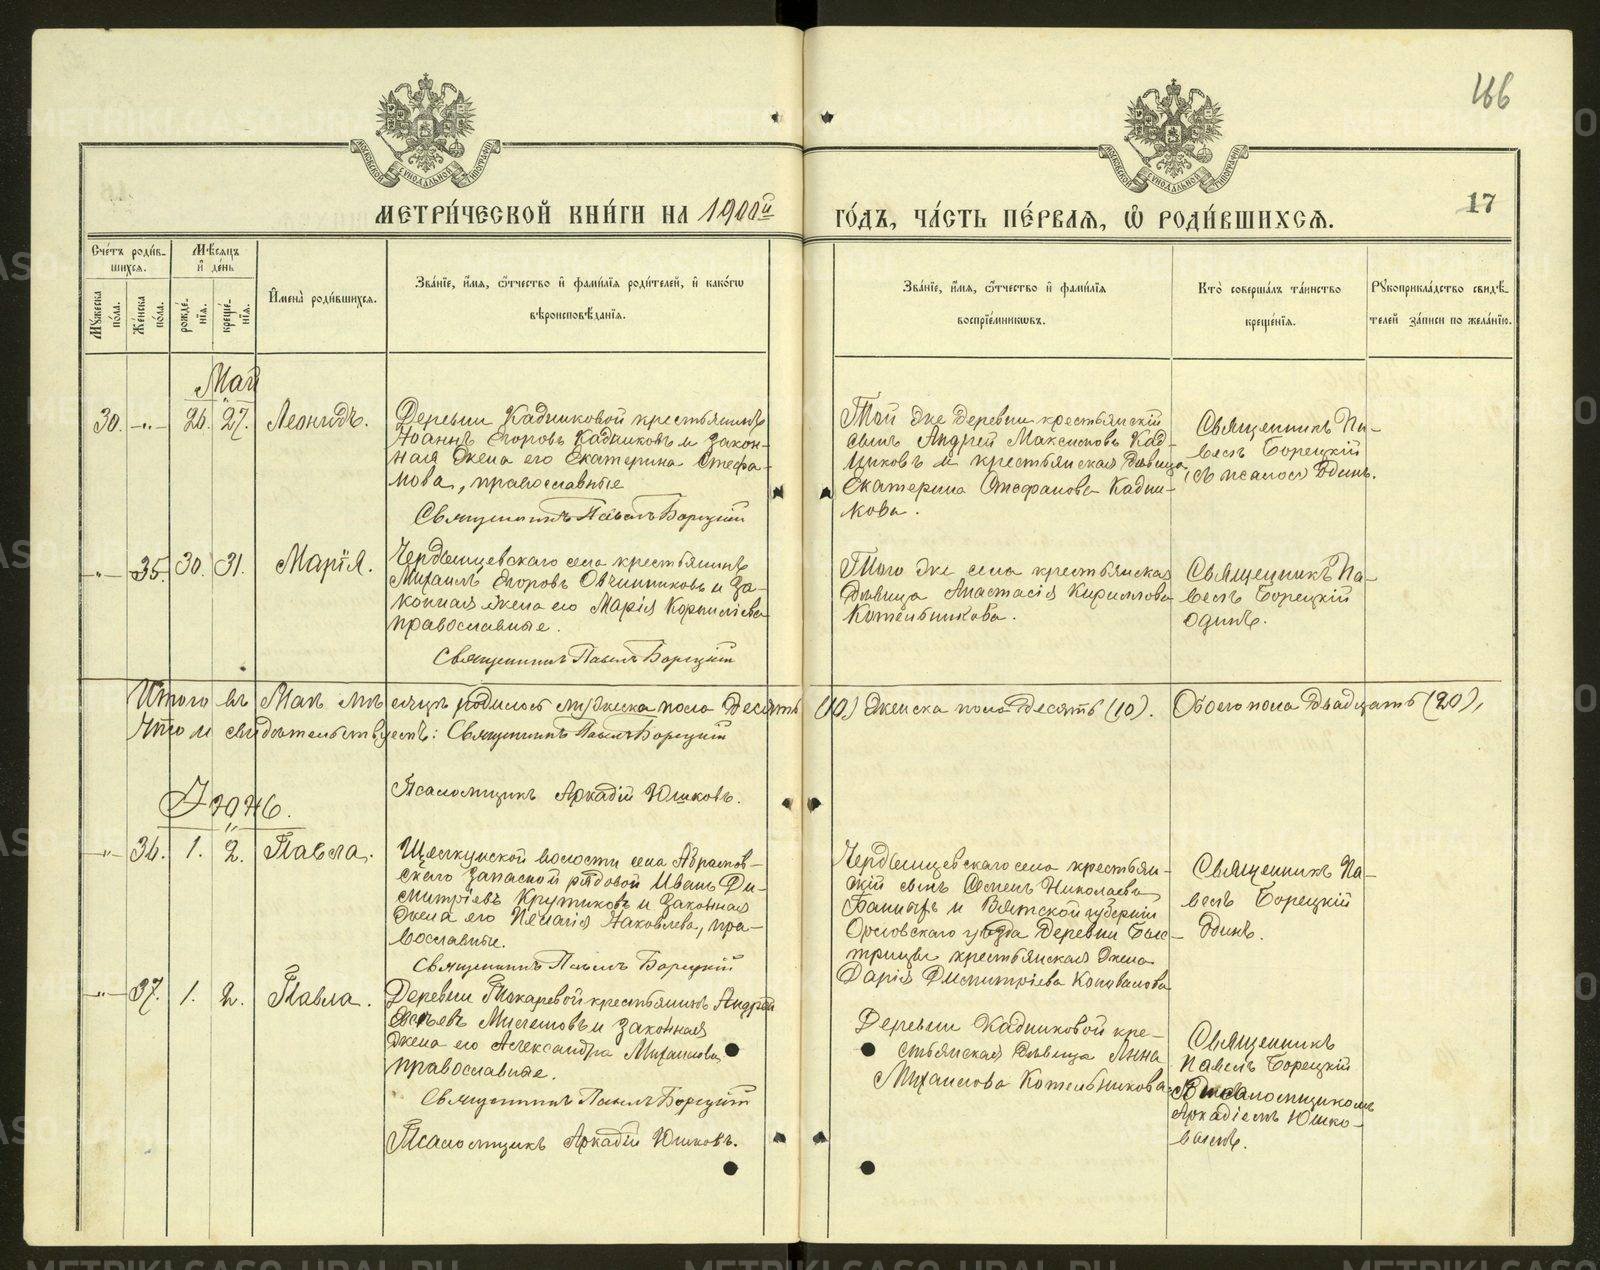 166
МОСКОВСКОЙ СѴНОДАЛЬНОЙ ТИПОГРАФІИ
МОСКОВСКОЙ СѴНОДАЛЬНОЙ ТИПОГРАФІИ
МЕТРИ́ЧЕСКОЙ КНИ́ГИ НА 1900й ГО́ДЪ, ЧА́СТЬ ПЕ́РВАЯ, Ѡ РОДИ́ВШИХСЯ.
17
Сче́тъ роди́в-
шихся.
Мѣ́сяцъ
и҆ де́нь
Му́жеска
по́ла.
Же́нска
по́ла.
рожде́-
нія.
креще́-
нія.
И҆мена̀ роди́вшихся.
Зва́ніе, и҆́мя, ѻ҆́тчество и҆ фами́лія роди́телей, и҆ како́гѡ
вѣроисповѣ́данія.
Зва́ніе, и҆́мя, ѻ҆́тчество и҆ фами́лія
воспріе́мникѡвъ.
Кто̀ соверша́лъ та́инство
креще́нія.
Рꙋкоприкла́дство свидѣ́-
телей за́писи по жела́нію.
Май
30. -„- 26. 27. Леонидъ.
Деревни Кадниковой крестьянинъ
Іоаннъ Егоровъ Кадниковъ и закон-
ная жена его Екатерина Стефа-
нова, православные
Священникъ Павелъ Борецкій
Той же деревни крестьянскій
сынъ Андрей Максимовъ Кад-
никовъ и крестьянская дѣвица
Екатерина Стефанова Кадни-
кова.
Священникъ Па-
велъ Борецкій
съ псалом
-„- 35. 30. 31. Марія.
Чердынцевскаго села крестьянинъ
Михаилъ Егоровъ Овчинниковъ и за-
конная жена его Марія Корниліева
православные.
Священникъ Павелъ Борецкій
Того же села крестьянская
дѣвица Анастасія Кириллова
Котельникова.
Священникъ Па-
велъ Борецкій
одинъ.
Итого въ Маѣ мѣсяцѣ родилось мужеска пола десять (10) женска пола десять (10). Обоего пола двадцать (20),
Что и свидѣтельствуемъ: Священникъ Павелъ Борецкій
Псаломщикъ Аркадій Юшковъ.
Іюнь.
-„- 36. 1. 2. Павла.
Щелкунской волости села Абрамов-
скаго запасной рядовой Иванъ Ди-
митріевъ Крутиковъ и законная
жена его Пелагія Іаковлева, пра-
вославные.
Священникъ Павелъ Борецкій
Чердынцевскаго села крестьян-
скій сынъ Семенъ Николаевъ
и Вятской губерніи
Орловскаго уѣзда деревни Быс-
трицы крестьянская жена
Дарія Димитріева Коновалова
Священникъ Па-
велъ Борецкій
одинъ.
-„- 37. 1. 2. Павла.
Деревни Токаревой крестьянинъ Андрей
и законная
жена его Александра Михаилова
православные.
Священникъ Павелъ Борецкій
Псаломщикъ Аркадій Юшковъ.
Деревни Кадниковой кре-
стьянская дѣвица Анна
Михаилова Котельникова
Священникъ
Павелъ Борецкій
съ псаломщикомъ
Аркадіемъ Юшко-
вымъ.